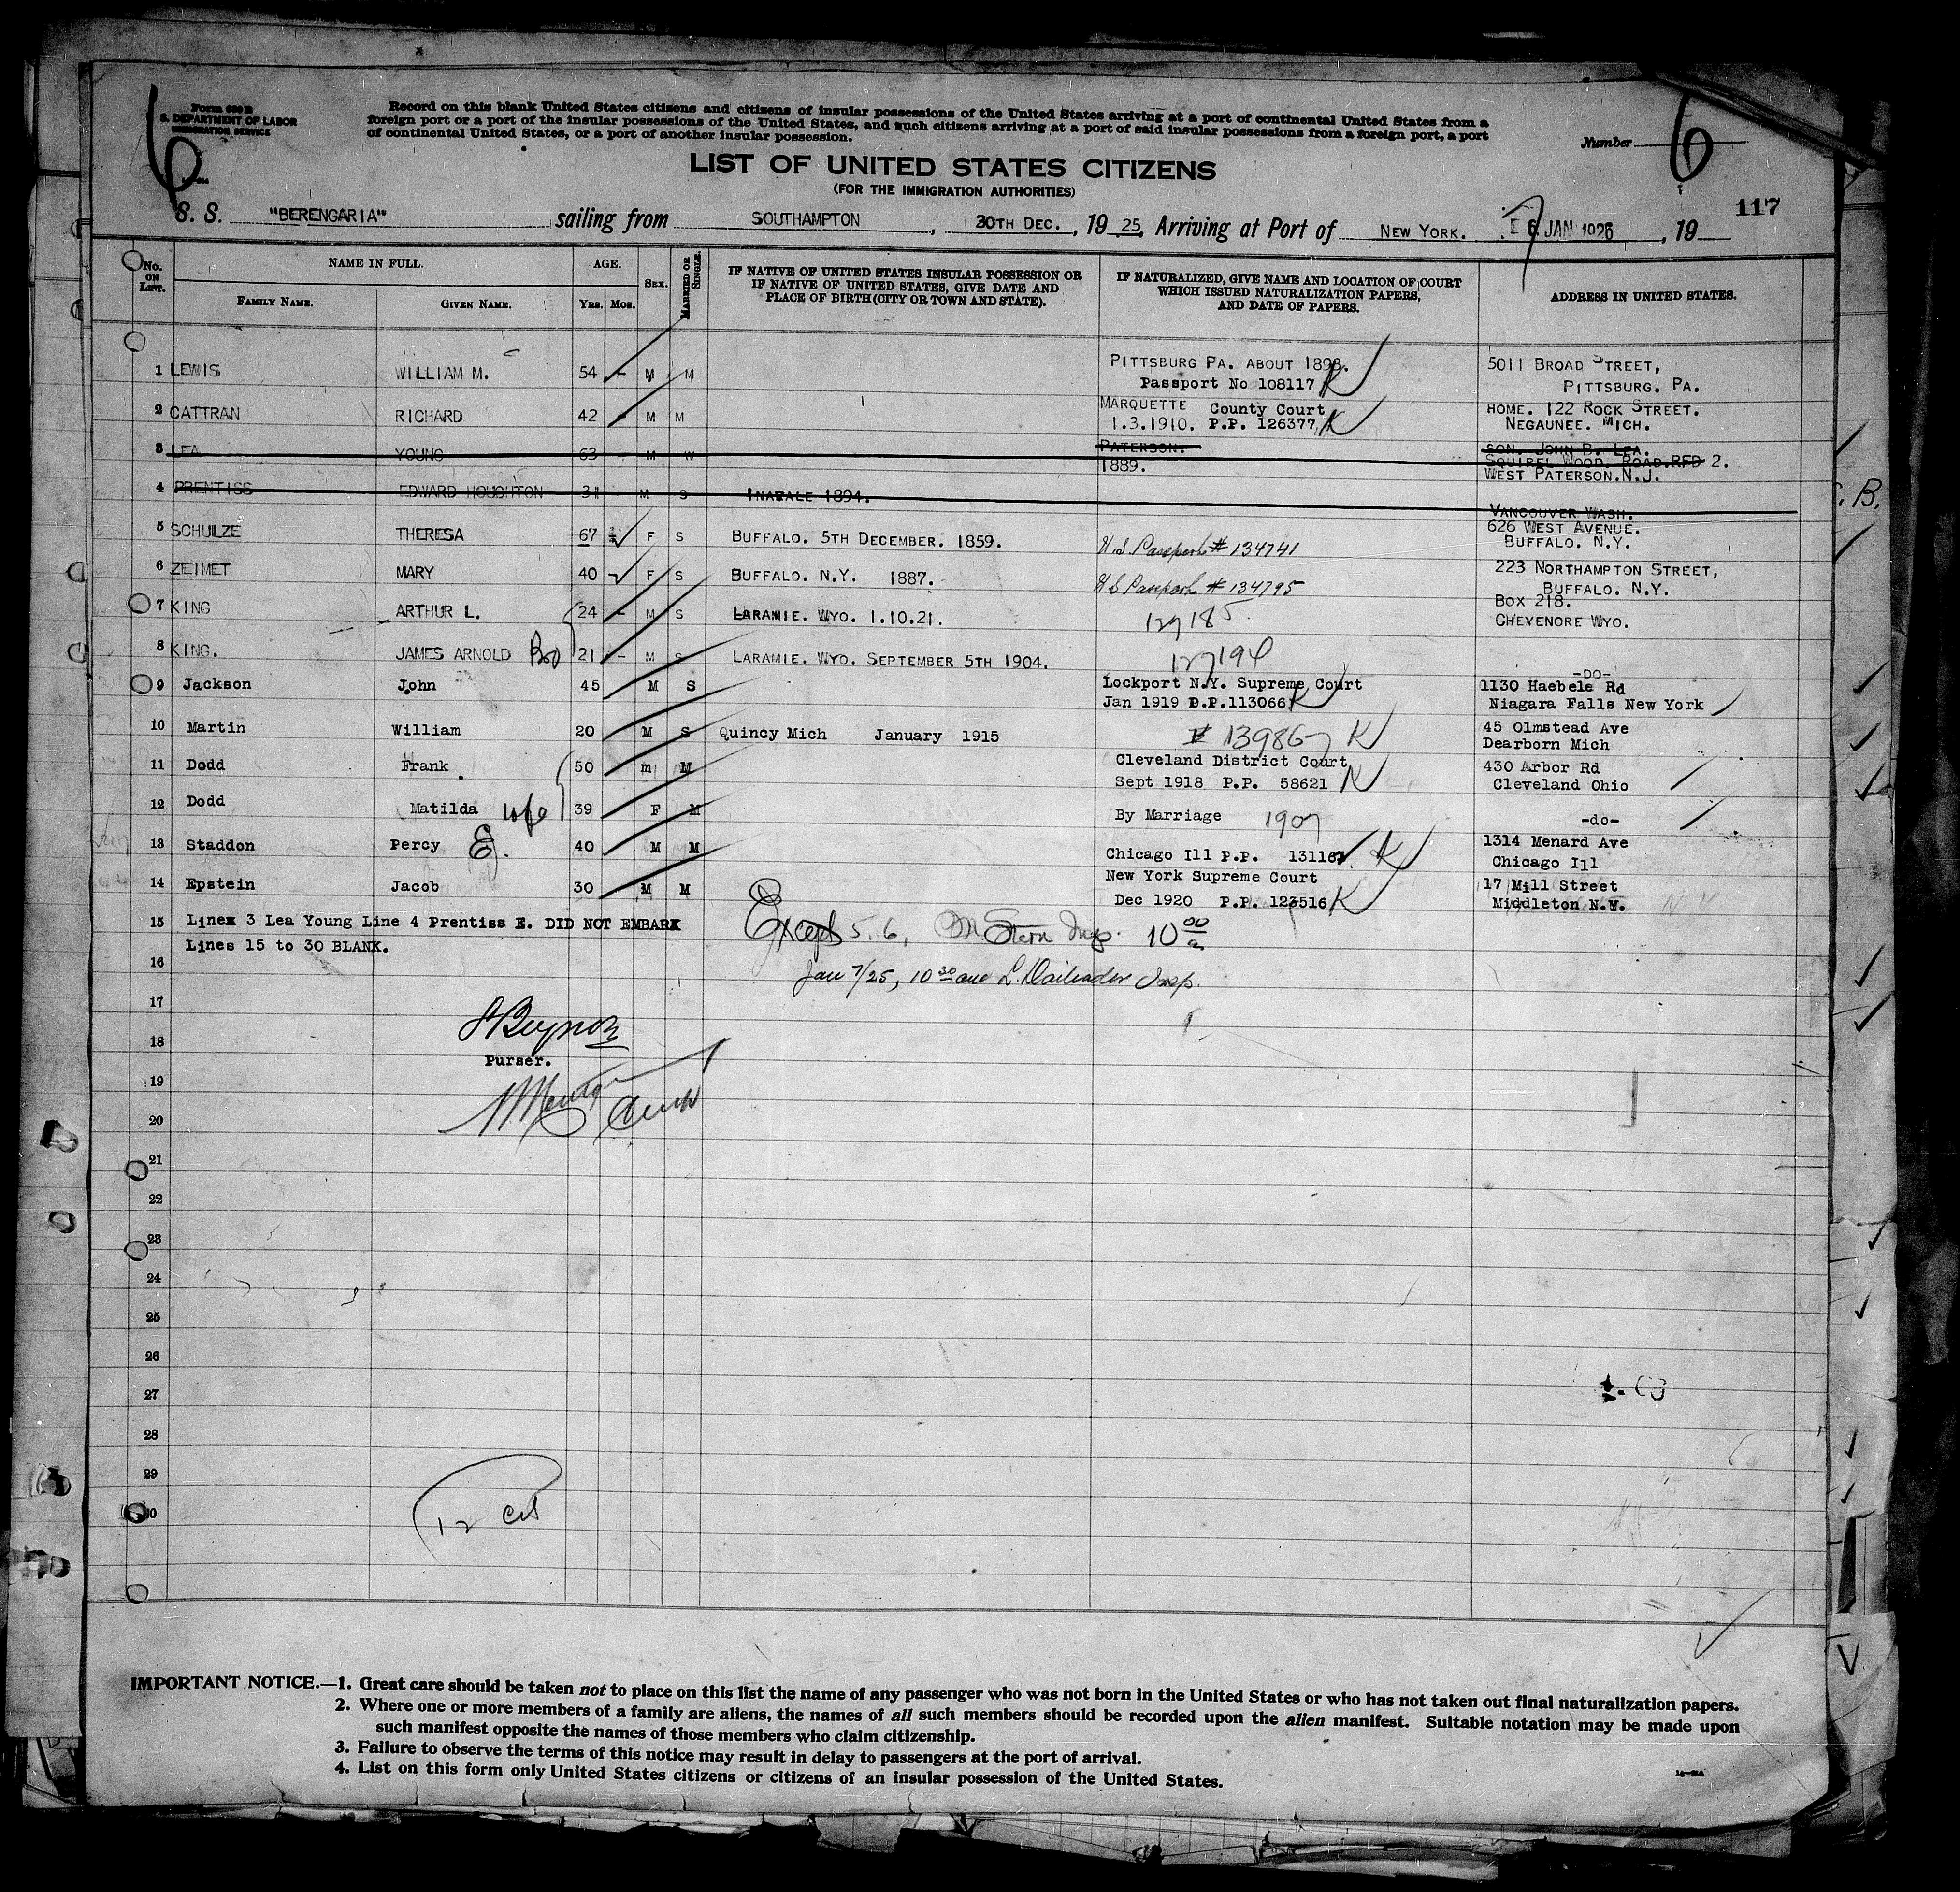 6
Form 630 B
S. DEPARTMENT OF LABOR
IMMIGRATION SERVICE
Record on this blank United States citizens and citizens of insular possessions of the United States arriving at a port of continental United States from a
foreign port or a port of the insular possessions of the United States, and such citizens arriving at a port of said insular possessions from a foreign port, a port
of continental United States, or a port of another insular possession.
Number 6
LIST OF UNITED STATES CITIZENS
(FOR THE IMMIGRATION AUTHORITIES)
117
S. S. "BERENGARIA" sailing from SOUTHAMPTON, 30TH DEC., 19 25, Arriving at Port of NEW YORK. 6 JAN 1926, 19
7
No. ON LIST.
NAME IN FULL.
FAMILY NAME.
GIVEN NAME.
AGE.
YRS. MOS.
SEX.
MARRIED OR SINGLE.
IF NATIVE OF UNITED STATES INSULAR POSSESSION OR
IF NATIVE OF UNITED STATES, GIVE DATE AND
PLACE OF BIRTH (CITY OR TOWN AND STATE).
IF NATURALIZED, GIVE NAME AND LOCATION OF COURT
WHICH ISSUED NATURALIZATION PAPERS,
AND DATE OF PAPERS.
ADDRESS IN UNITED STATES.
1 LEWIS WILLIAM M. 54 - M M PITTSBURG PA. ABOUT 1898. 5011 BROAD STREET,
Passport No 108117 K PITTSBURG. PA.
2 CATTRAN RICHARD 42 - M M MARQUETTE County Court HOME. 122 ROCK STREET.
1.3.1910. P.P. 126377 K NEGAUNEE. MICH.
3 LEA YOUNG 63 M W PATERSON. SON. JOHN B. LEA.
1889. SQUIREL WOOD. ROAD.RFD 2.
WEST PATERSON.N.J.
4 PRENTISS EDWARD HOUGHTON 31 M S INAVALE 1894. B.
VANCOUVER WASH.
5 SCHULZE THERESA 67 F S BUFFALO. 5TH DECEMBER. 1859. U.S. Passport # 134741 626 WEST AVENUE.
BUFFALO. N.Y.
6 ZEIMET MARY 40 F S BUFFALO. N.Y. 1887. U S Passport # 134795 223 NORTHAMPTON STREET,
BUFFALO. N.Y.
7 KING ARTHUR L. 24 - M S LARAMIE. WYO. 1.10.21. 127185 BOX 218.
CHEYENORE WYO.
8 KING. JAMES ARNOLD Bro 21 - M S LARAMIE. WYO. SEPTEMBER 5TH 1904. 127194
-DO-
9 Jackson John 45 M S Lockport N.Y. Supreme Court 1130 Haebele Rd
Jan 1919 P.P.113066 K Niagara Falls New York
10 Martin William 20 M S Quincy Mich January 1915 139867 K 45 Olmstead Ave
Dearborn Mich
11 Dodd Frank 50 m M Cleveland District Court 430 Arbor Rd
Sept 1918 P.P. 58621 K Cleveland Ohio
12 Dodd Matilda wife 39 F M By Marriage 1907 -do-
13 Staddon Percy E. 40 M M Chicago Ill P.P. 131167 K 1314 Menard Ave
Chicago Ill
14 Epstein Jacob 30 M M New York Supreme Court 17 Mill Street
Dec 1920 P.P. 123516 K Middleton N.Y.
15 Linex 3 Lea Young Line 4 Prentiss E. DID NOT EMBARK
Lines 15 to 30 BLANK.
Except 5. 6, M Stern Insp. 10 00 a
Jan 7/25, 10 30 am L. Daileader Insp.
16
17
18
Purser.
19
20
21
22
23
24
25
26
27
28
29
30
12 cit
IMPORTANT NOTICE.—1. Great care should be taken not to place on this list the name of any passenger who was not born in the United States or who has not taken out final naturalization papers.
2. Where one or more members of a family are aliens, the names of all such members should be recorded upon the alien manifest. Suitable notation may be made upon
such manifest opposite the names of those members who claim citizenship.
3. Failure to observe the terms of this notice may result in delay to passengers at the port of arrival.
4. List on this form only United States citizens or citizens of an insular possession of the United States.